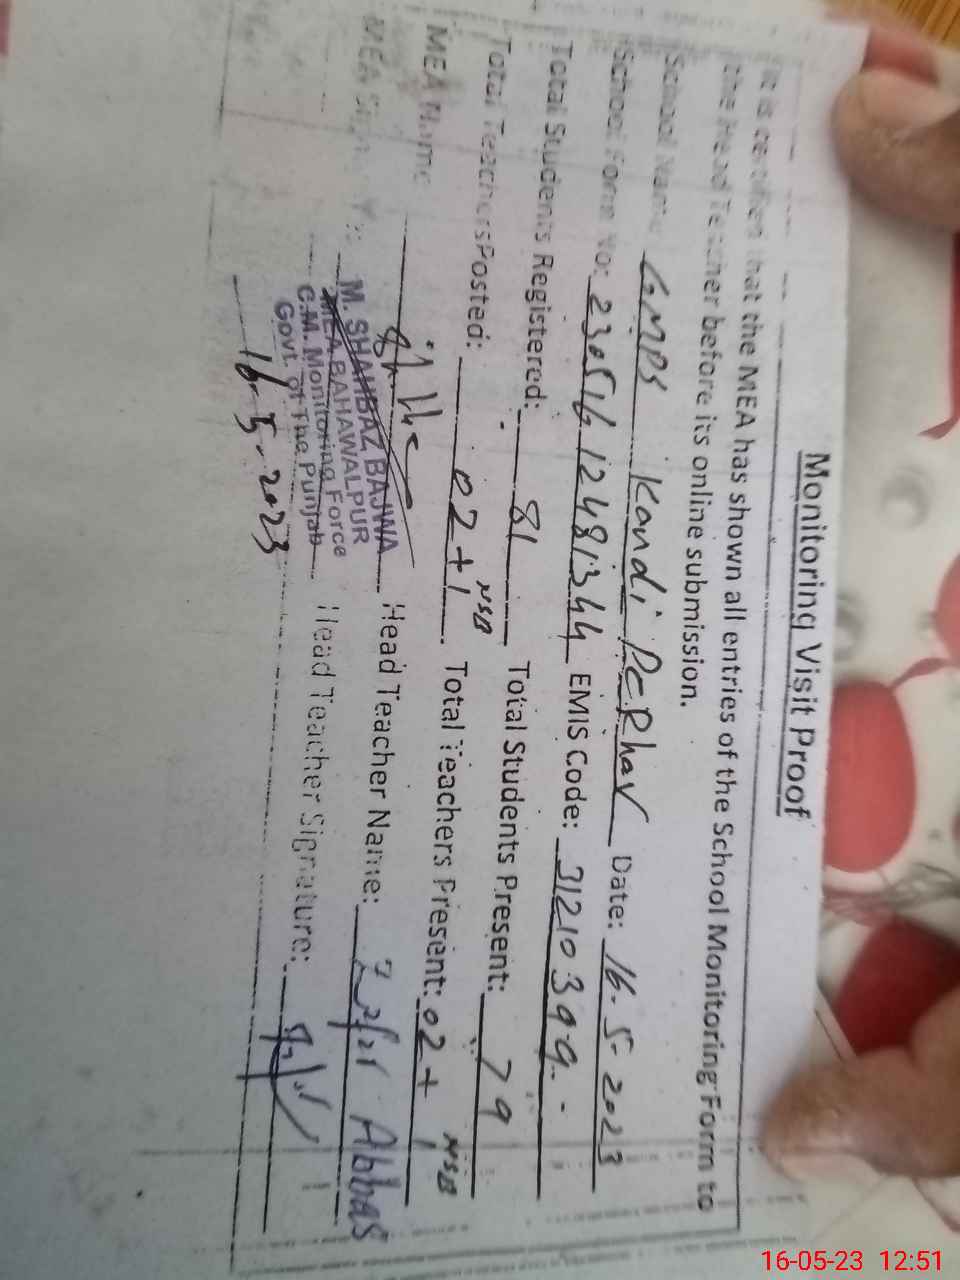 Monitoring Visit Proof
It is certified that the MEA has shown all entries of the School Monitoring Form to
the Head Teacher before its online submission.
School Name GMPS Kandi Date: 16-5-2023
School Form No: 23051612481344 EMIS Code: 31210399
Total Students Registered: 81 Total Students Present: 79
Total Teachers Posted: 02+1 NSB Total Teachers Present: 02+1 NSB
MEA Name Head Teacher Name: Zafar Abbas
M. SHAHBAZ BAJWA
MEA BAHAWALPUR
C.M. Monitoring Force
Govt. of The Punjab
MEA Sign Head Teacher Signature:
16-5-2023
16-05-23 12:51